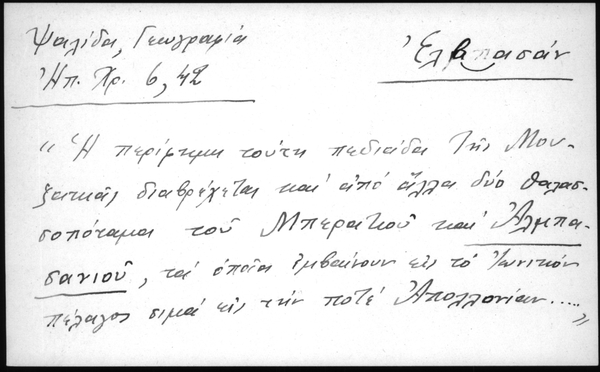 Ψαλίδα, Γεωγραφία
Ἠπ. Χρ. 6, 42
Ἐλβπασάν
"Ἡ περίφημη τούτη πεδιάδα τῆς Μου-
ζακιᾶς διαβρέχεται καὶ ἀπό ἄλλα δύο θαλασ-
σοπόταμα τοῦ Μπερατιοῦ καὶ Ἀλμπα-
σανιοῦ, τὰ ὁποῖα ἐμβαίνουν εἰς τὸ Ἰωνικόν
πέλαγος σιμά εἰς τήν ποτέ Ἀπολλονίαν....."